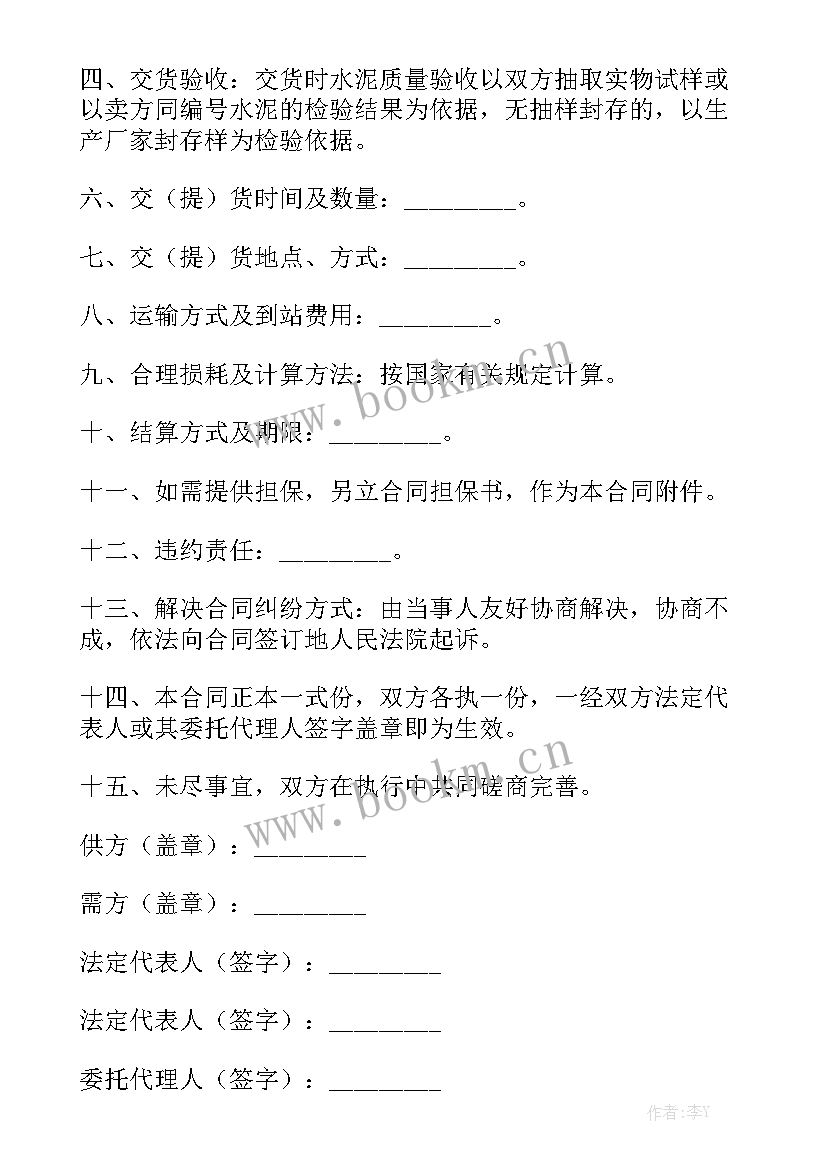 四、交货验收：交货时水泥质量验收以双方抽取实物试样或
以卖方同编号水泥的检验结果为依据，无抽样封存的，以生
产厂家封存样为检验依据。
六、交（提）货时间及数量：_________。
七、交（提）货地点、方式：_________。
八、运输方式及到站费用：_________。
九、合理损耗及计算方法：按国家有关规定计算。
www.bookm.cn
十、结算方式及期限：_________。
十一、如需提供担保，另立合同担保书，作为本合同附件。
十二、违约责任：_________。
十三、解决合同纠纷方式：由当事人友好协商解决，协商不
成，依法向合同签订地人民法院起诉。
十四、本合同正本一式份，双方各执一份，一经双方法定代
表人或其委托代理人签字盖章即为生效。
十五、未尽事宜，双方在执行中共同磋商完善。
www.bookm.cn
供方（盖章）：_________
需方（盖章）：_________
法定代表人（签字）：_________
法定代表人（签字）：_________
委托代理人（签字）：_________
作者:李Y